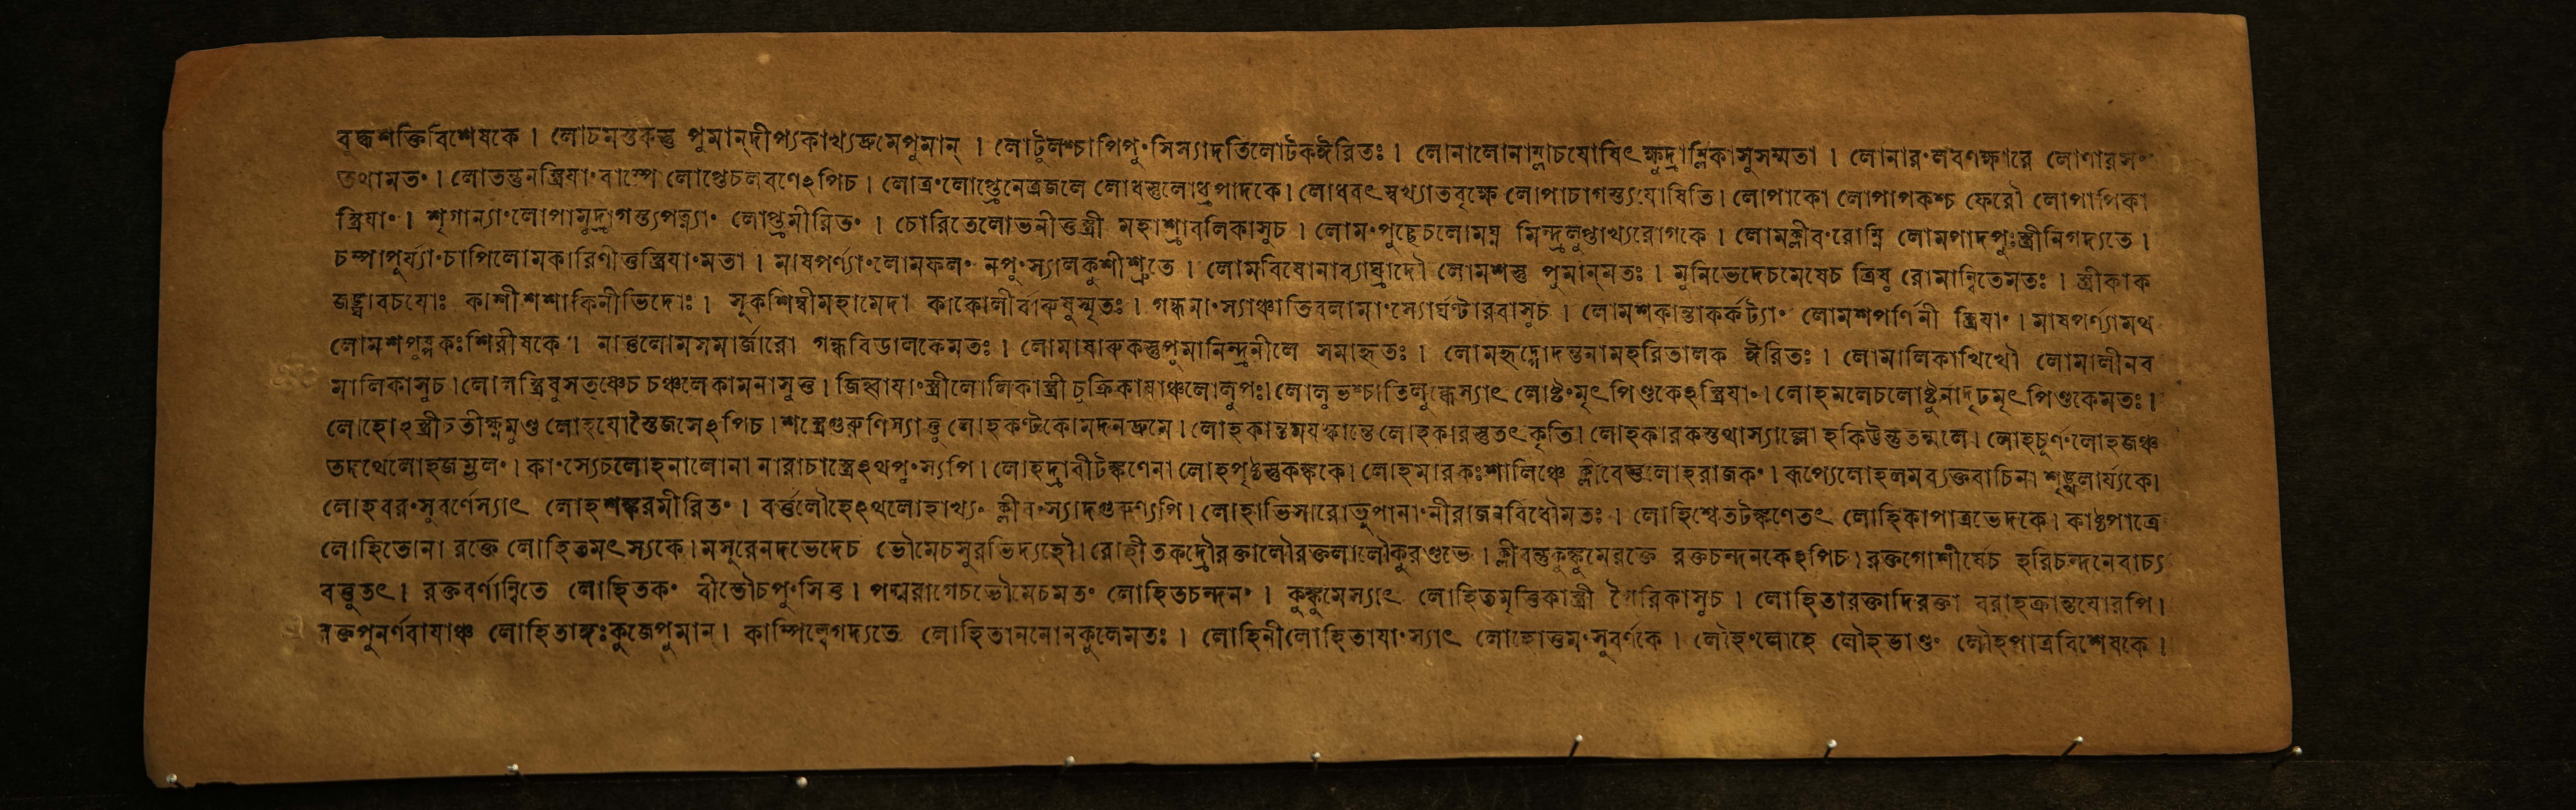 বৃদ্ধশক্তিবিশেষকে । লোচমস্তকস্তু পুমান্দীপ্যকাখ্যদ্রুমেপুমান্ । লোটুলশ্চাপিপুংসিস্যাদতিলোটকঈরিতঃ । লোনালোনাম্লাচযোষিৎক্ষুদ্রাম্লিকাসুসম্মতা । লোনারংলবণক্ষারে লোণারসং
তথামতং । লোতন্তুনস্ত্রিযাংবাষ্পে লোপ্ত্রেচলবণেঽপিচ । লোত্রংলোপ্ত্রেনেত্রজলে লোধস্তুলোধ্রপাদকে। লোধবৎস্বখ্যাতবৃক্ষে লোপাচাগস্ত্যযোষিতি। লোপাকো লোপাপকশ্চ ফেরৌ লোপাপিকা
স্ত্রিযাং । শৃগাল্যাংলোপামুদ্রাগস্ত্যপত্ন্যাং লোপ্ত্রমীরিতং । চোরিতেলোভনীত্তস্ত্রী মহাশ্রাবলিকাসুচ । লোমংপুচ্ছেচলোমঘ্ন মিন্দ্রলুপ্তাখ্যরোগকে । লোমক্লীবংরোম্নি লোমপাদপুঃস্ত্রীনিগদ্যতে ।
চম্পাপুর্য্যাংচাপিলোমকারিণীত্তস্ত্রিযাংমতা । মাষপর্ণ্যাংলোমফলং নপুংস্যালকুশীশ্রুতে । লোমবিষোনাব্যাঘ্রাদৌ লোমশস্তু পুমান্মতঃ । মুনিভেদেচমেষেচ ত্রিষু রোমান্বিতেমতঃ । স্ত্রীকাক
জঙ্ঘাবচযোঃ কাশীশশাকিনীভিদোঃ । সূকশিম্বীমহামেদা কাকোলীর্বারুষুস্মৃতঃ । গন্ধনাংস্যাঞ্চাতিবলামাংস্যোর্ঘণ্টারবাসুচ । লোমশকান্তাকর্কট্যাং লোমশপর্ণিনী স্ত্রিযাং । মাষপর্ণ্যামথ
লোমশপুষ্পকঃশিরীষকে । নাত্তুলোমসমার্জারো গন্ধবিডালকেমতঃ । লোমাষারুকস্তুপুমানিন্দ্রনীলে সমাহৃতঃ । লোমহৃদ্গোদন্তনামহরিতালক ঈরিতঃ । লোমালিকাখিখৌ লোমালীনব
মালিকাসুচ।লোলস্ত্রিষুসতৃষ্ণেচ চঞ্চলেকামনাসুত্ত। জিহ্বাযাংস্ত্রীলোলিকাস্ত্রী চুক্রিকাযাঞ্চলোলুপঃ।লোলুভশ্চাতিলুব্ধেস্যাৎ লোষ্টংমৃৎপিণ্ডকেঽস্ত্রিযাং।লোহমলেচলোষ্টুর্নাদৃঢমৃৎপিণ্ডকেমতঃ।
লোহোঽস্ত্রীচতীক্ষ্ণমুণ্ড লোহযোস্তৈজসেঽপিচ।শস্ত্রেগুরুণিস্যাত্তু লোহকণ্টকোমদনদ্রুমে।লোহকান্তময়স্কান্তে লোহকারস্তুতৎকৃতি। লোহকারকস্তথাস্যাল্লোহকিউস্তুতন্মলে। লোহচূর্ণংলোহজঞ্চ
তদর্থেলোহজম্ভলং। কাংস্যেচলোহনালোনা নারাচাস্ত্রেঽথপুংস্যপি।লোহদ্রাবীটঙ্কণেনা লোহপৃষ্ঠস্তুকঙ্ককে। লোহমারকঃশালিঞ্চে ক্লীবেত্তুলোহরাজকং। রূপ্যেলোহলমব্যক্তবাচিনা শৃঙ্খলার্য্যকে।
লোহবরংসুবর্ণেস্যাৎ লোহশঙ্করমীরিতং । বর্ত্তলৌহেঽথলোহাখ্যং ক্লীবংস্যাদগুরুণ্যপি।লোহাভিসারোভুপানাংনীরাজনবিধৌমতঃ । লোহিশ্বেতটঙ্কণেতৎ লোহিকাপাত্রভেদকে। কাষ্ঠপাত্রে
লোহিতোনা রক্তে লোহিতমৎস্যকে।মসূরেনদভেদেচ ভৌমেচসুরভিদ্যহৌ।রোহীতকদ্রৌরক্তালৌরক্তলালৌকুরণ্ডভে।ক্লীবন্তুকুঙ্কুমেরক্তে রক্তচন্দনকেঽপিচ।রক্তগোশীর্ষেচ হরিচন্দনেবাচ্য
বত্তুতৎ। রক্তবর্ণান্বিতে লোহিতকং বীতৌচপুংসিত্ত। পদ্মরাগেচভৌমেচমতং লোহিতচন্দনং । কুঙ্কুমেস্যাৎ লোহিতমৃত্তিকাস্ত্রী গৈরিকাসুচ । লোহিতারক্তাদিরক্তা বরাহক্রান্তযোরপি।
রক্তপুনর্ণবাযাঞ্চ লোহিতাঙ্গঃকুজেপুমান্। কাম্পিল্লেগদ্যতে লোহিতাননোনকুলেমতঃ । লোহিনীলোহিতাযাংস্যাৎ লোহোত্তমংসুবর্ণকে । লৌহংলোহে লৌহভাণ্ডং লৌহপাত্রবিশেষকে ।